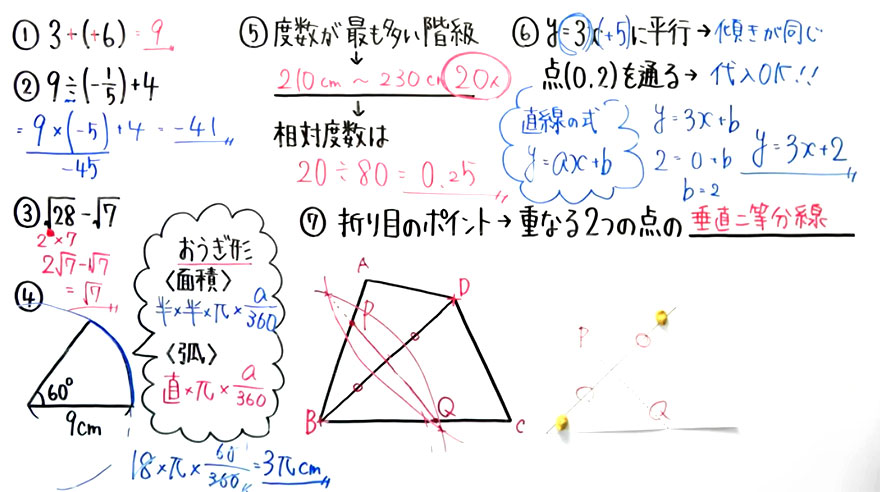 ① 3+(+6)=9
② 9÷(-1/5)+4
=9×(-5)+4=-41
-45
③ √28-√7
2²×7
2√7-√7
=√7
④
60°
9cm
おうぎ形
〈面積〉
半×半×π×a/360
〈弧〉
直×π×a/360
18×π×60/360=3πcm
⑤ 度数が最も多い階級
↓
210cm～230cm 20人
↓
相対度数は
20÷80=0.25
⑥ y=3x+5に平行→傾きが同じ
点(0,2)を通る→代入OK!!
直線の式
y=ax+b
y=3x+b
2=0+b
b=2
y=3x+2
⑦ 折り目のポイント→重なる2つの点の垂直二等分線
A
D
P
B
Q
C
P
Q